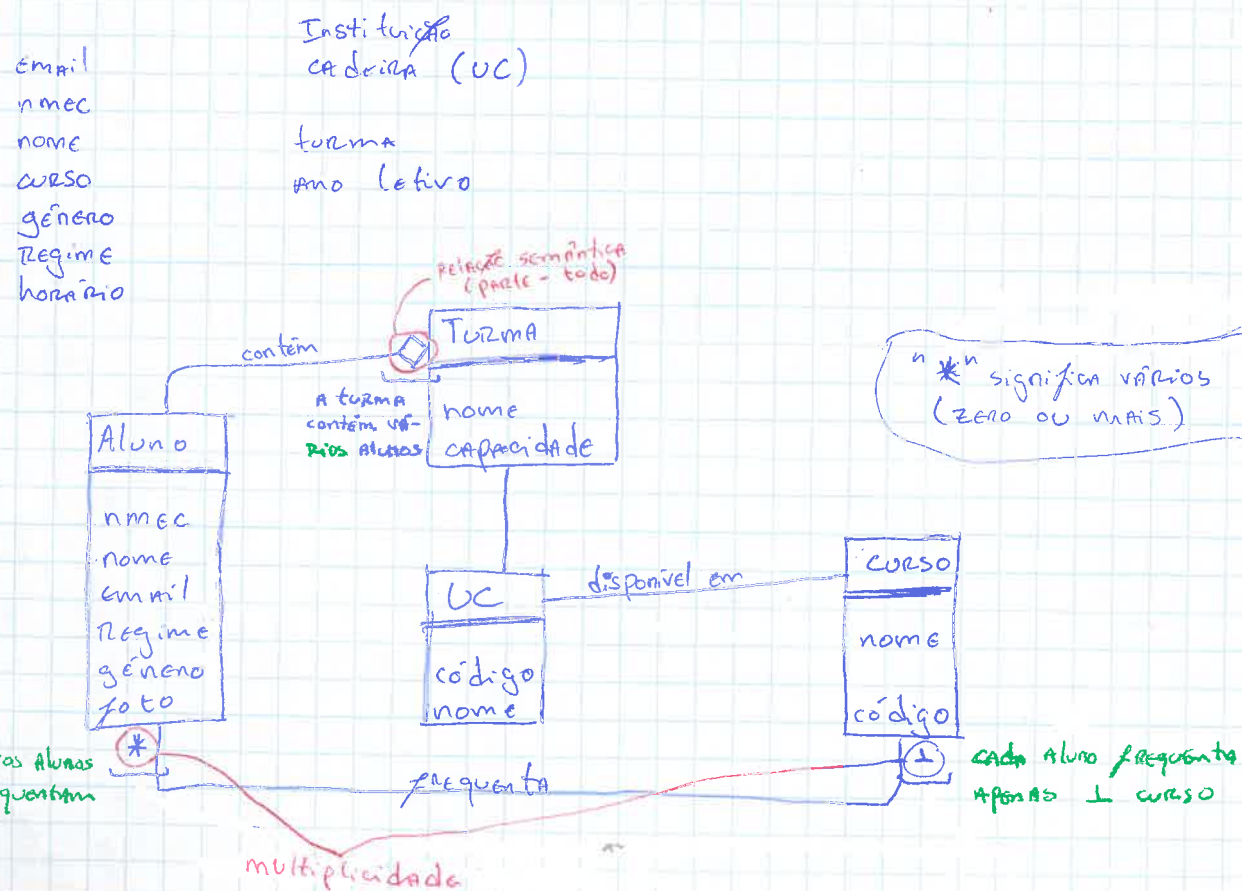 Instituição
cadeira (UC)
turma
ano letivo
email
nmec
nome
curso
género
Regime
horário
Relação semântica
(parte - todo)
contém
Turma
nome
capacidade
A turma
contém vá-
rios alunos
"*" significa vários
(zero ou mais)
Aluno
nmec
nome
email
Regime
género
foto
UC
código
nome
disponível em
curso
nome
código
*
os Alunos
quentam
frequenta
1
cada Aluno frequenta
apenas 1 curso
multiplicidade